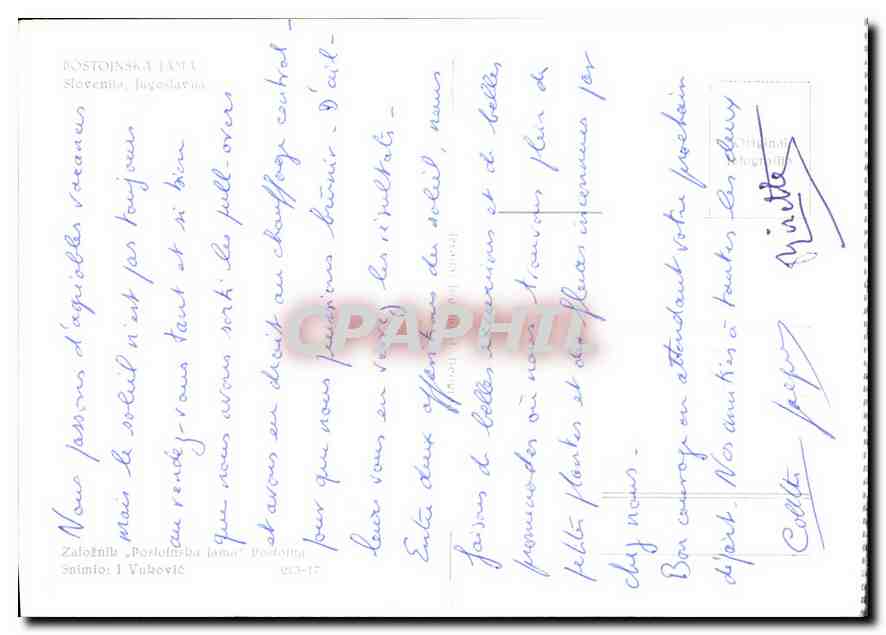 POSTOJNSKA JAMA
Slovenija, Jugoslavija
Nous passons d'agréables vacances
mais le soleil n'est pas toujours
au rendez-vous tant et si bien
que nous avons sorti les pull-overs
et avons eu droit au chauffage central -
pour que nous puissions brunir - D'ail-
leurs vous en verrez les résultats -
Entre deux apparitions du soleil, nous
faisons de belles excursions et de belles
promenades où nous trouvons plein de
petites plantes et des fleurs inconnues par
chez nous -
Bon courage en attendant votre prochain
départ - Nos amitiés à toutes les deux
Colette
Ginette
Original
fotografija
CPAPHIL
Založnik „Postojnska jama" Postojna
Snimio: I Vuković